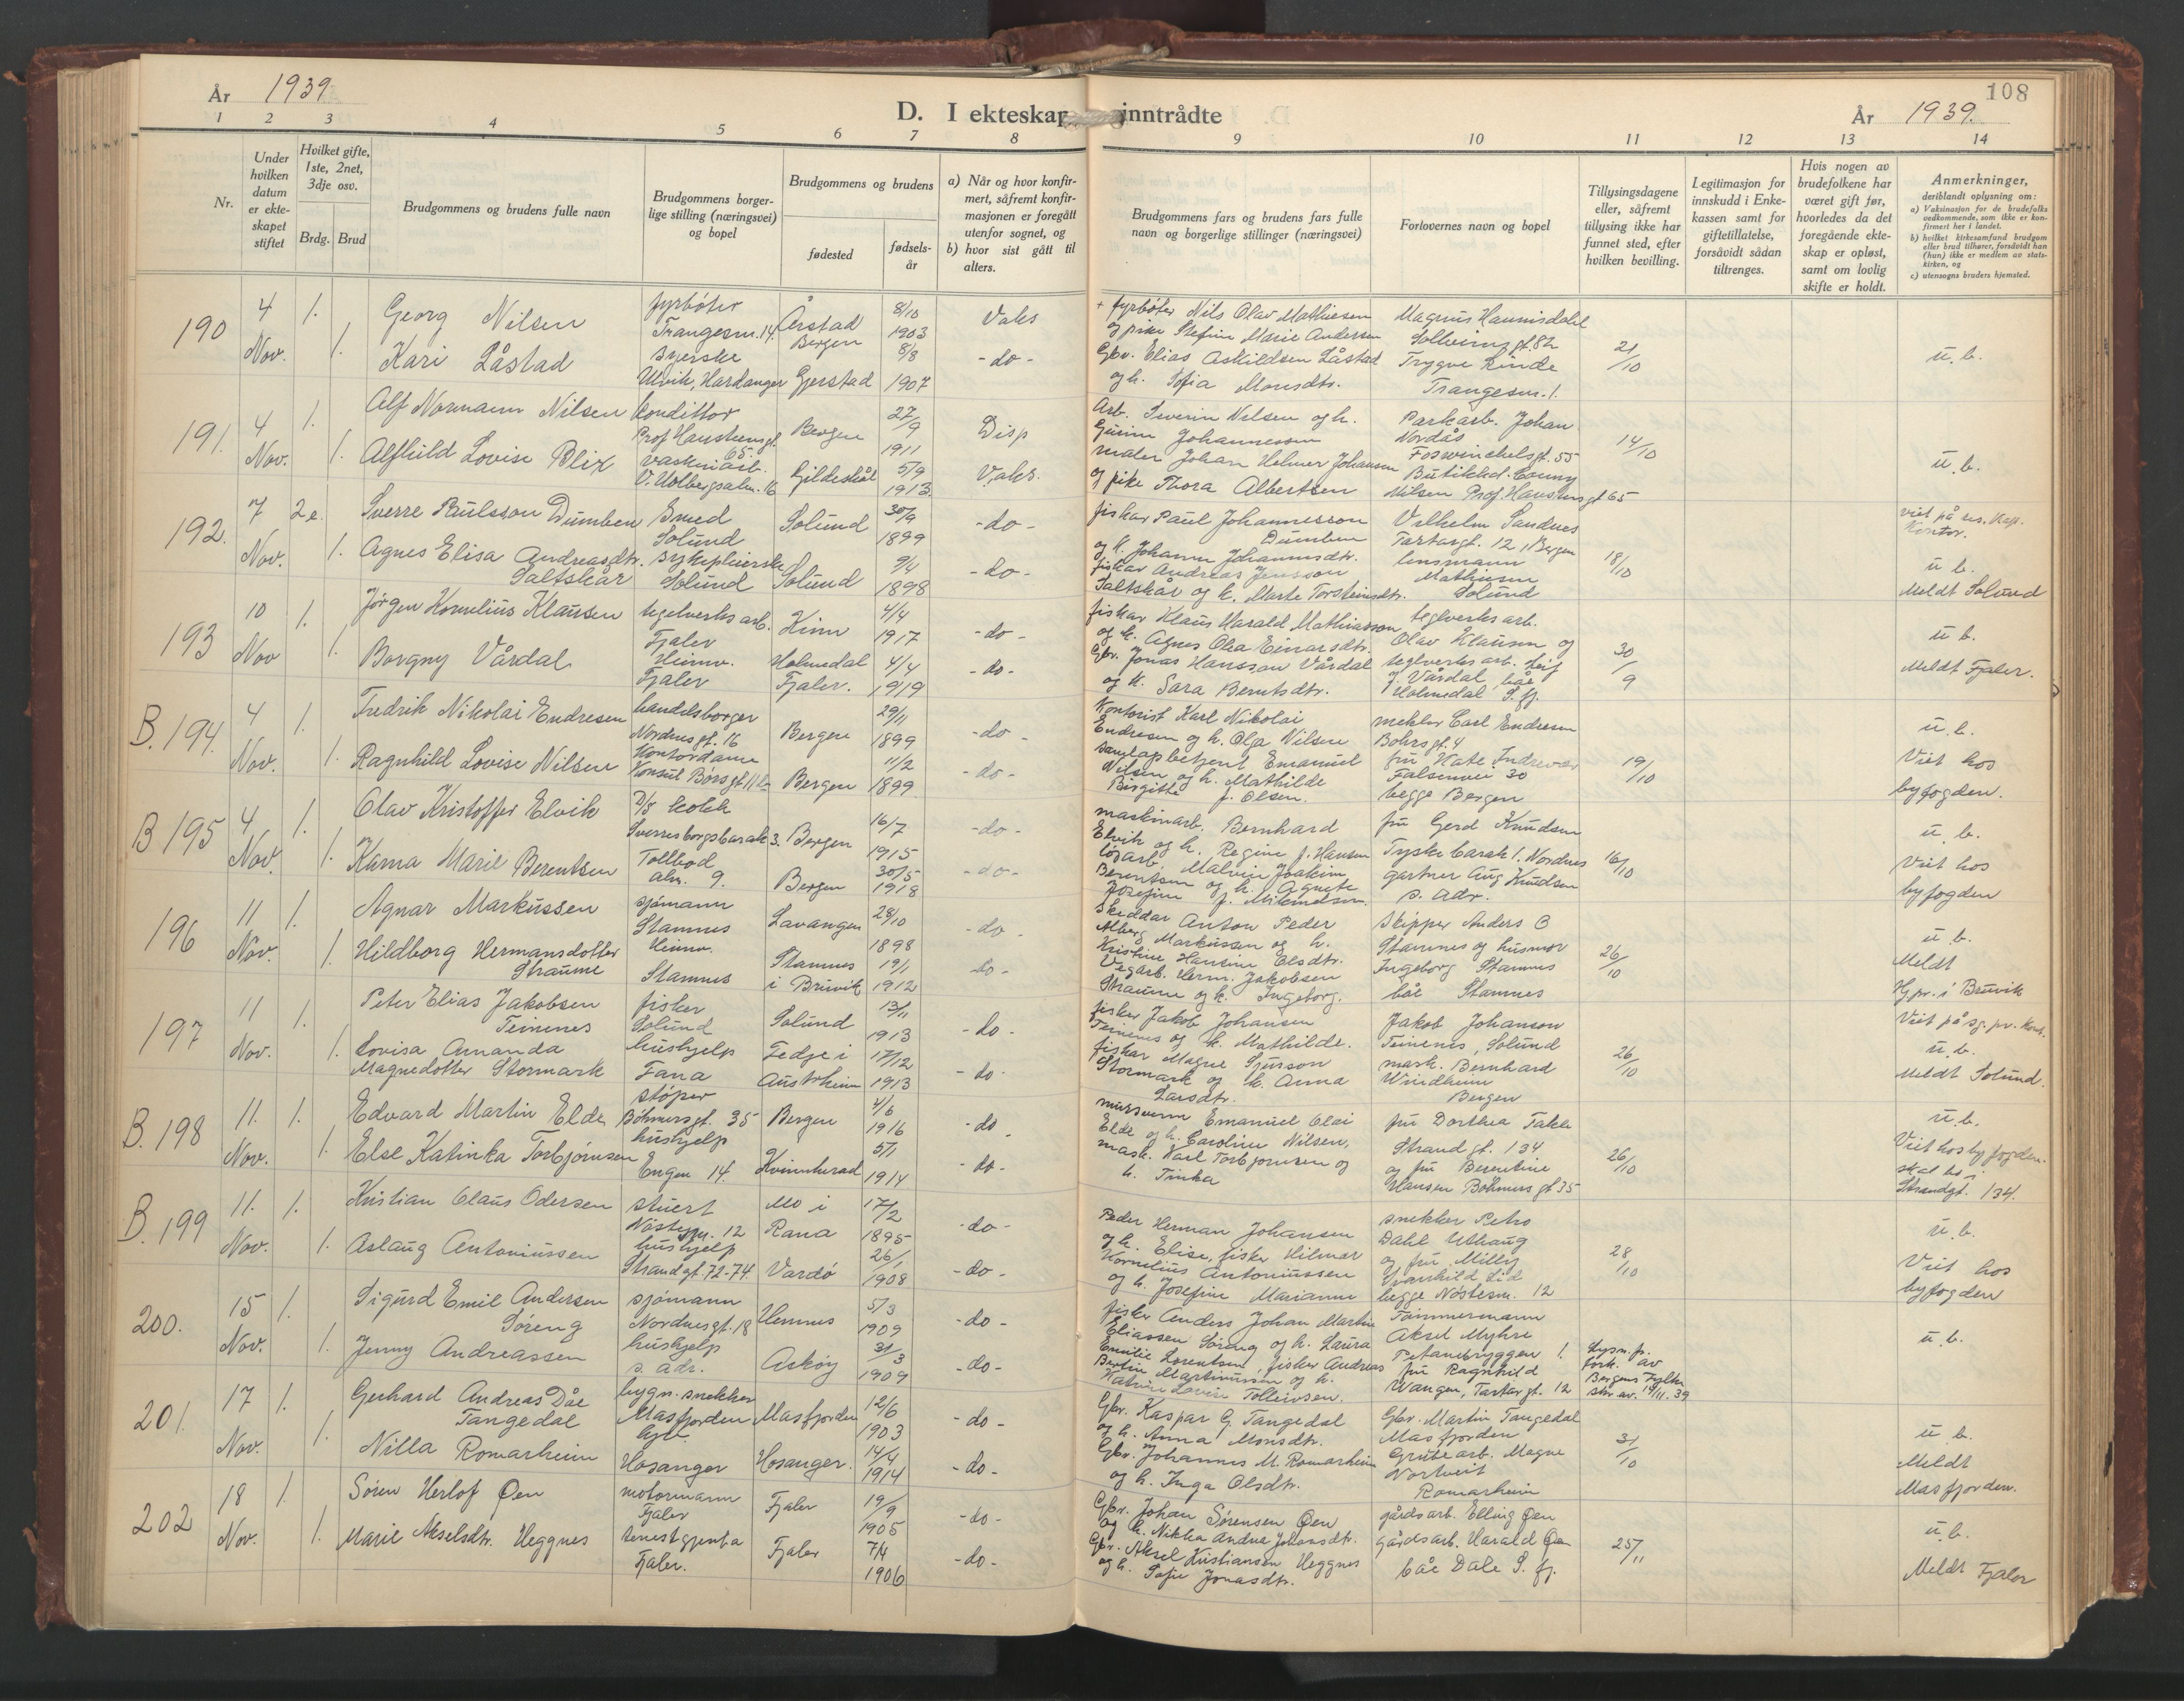 108
År 1939
D. I ekteskap inntrådte
År 1939.
1 2 3 4 5 6 7 8 9 10 11 12 13 14
Nr.
Under hvilken datum er ekteskapet stiftet
Hvilket gifte, 1ste, 2net, 3dje osv.
Brdg. Brud
Brudgommens og brudens fulle navn
Brudgommens borgerlige stilling (næringsvei) og bopel
Brudgommens og brudens
fødested
fødsels-år
a) Når og hvor konfirmert, såfremt konfirmasjonen er foregått utenfor sognet, og
b) hvor sist gått til alters.
Brudgommens fars og brudens fars fulle navn og borgerlige stillinger (næringsvei)
Forlovernes navn og bopel
Tillysingsdagene eller, såfremt tillysing ikke har funnet sted, efter hvilken bevilling.
Legitimasjon for innskudd i Enkekassen samt for giftetillatelse, forsåvidt sådan tiltrenges.
Hvis nogen av brudefolkene har været gift før, hvorledes da det foregående ekteskap er opløst, samt om lovlig skifte er holdt.
Anmerkninger,
deriblandt oplysning om:
a) Vaksinasjon for de brudefolks vedkommende, som ikke er konfirmert her i landet.
b) hvilket kirkesamfund brudgom eller brud tilhører, forsåvidt han (hun) ikke er medlem av statskirken, og
c) utensogns bruders hjemsted.
190 4 Nov. 1. 1.
Georg Nilsen fyrbøter Trangesm. 14. Årstad Bergen 8/10 1903 Vaks
Kari Låstad syerske Ulvik, Hardanger Gjerstad 8/8 1907 - do -
+ fyrbøter Nils Olav Mathiesen
og pike Stefine Marie Andersen
Gbr. Elias Askildsen Låstad
og h. Sofia Monsdtr.
Magnus Haunisdahl
Solheimsgt. 82
Trygve Rinde
Trangesm. 1.
21/10
u. b.
191. 4 Nov. 1. 1.
Alf Normann Nilsen konditor Prof. Hansteensgt. 65. Bergen 27/9 1911 Disp
Alfhild Lovise Blix vaskeriarb. V. Holbergsalm. 16 Gildeskål 5/9 1913. Vaks.
Arb. Severin Nilsen og h.
Gurine Johannessen
maler Johan Helmer Johansen
og pike Thora Albertsen
Parkarb. Johan
Nordås
Foswinckelsgt. 55
Butikkd. Conny
Nilsen Prof. Hansteensgt 65
14/10
u. b.
192. 7 Nov. 2e. 1.
Sverre Paulsson Dumben Smed Solund Solund 30/9 1899 - do -
Agnes Elisa Andreasdtr. Saltskår sykepleierske Solund Solund 9/4 1898 - do -
fisker Paul Johannesson
Dumben
og h. Johanne Johannesdtr.
fiskar Andreas Jensson
Saltskår og h. Marte Torsteinsdtr.
Vilhelm Sandnes
Tartargt. 12, Bergen
lensmann
Mathiesen
Solund
18/10
viet på res. kap.
Kontor.
u. b.
Meldt Solund
193 10 Nov 1. 1.
Jørgen Kornelius Klausen tegelverksarb. Fjaler Kinn 4/4 1917 - do -
Borgny Vårdal Heimv. Fjaler Holmedal Fjaler. 4/4 1919 - do -
fiskar Klaus Harald Mathiasson
og h. Agnes Olea Einarsdtr.
Gbr. Jonas Hansson Vårdal
og h. Sara Berntsdtr.
teglverksarb.
Olav Klausen og
teglverksarb. Leif
J. Vårdal, båe
Holmedal S. fj.
30/9
u. b.
Meldt Fjaler.
B. 194. 4 Nov. 1. 1.
Fredrik Nikolai Endresen handelsborger Nordnesgt. 16 Bergen 29/11 1899 - do -
Ragnhild Lovise Nilsen Kontordame Konsul Børsgt. 11 Bergen 11/2 1899 - do -
Kontorist Karl Nikolai
Endresen og h. Olga Nilsen
Emanuel
Nilsen og h. Mathilde
Birgitte f. Olsen.
mekler Carl Endresen
Bohrsgt. 4
fru Kate Indrevær
Falsensvei 30
begge Bergen
19/10
u. b.
Viet hos
byfogden.
B 195 4 Nov. 1. 1.
Olav Kristoffer Elvik D/S kokk Sverresborgsbarak 3. Bergen 16/7 1915 - do -
Karna Marie Berentsen Tollbod alm. 9. Bergen 30/5 1918 - do -
maskinarb. Bernhard
Elvik og h. Regine f. Hansen
løsarb. Malvin Joakim
Berentsen og h. Agnete
Josefine f. Mikkelsen.
fru Gerd Knudsen
Tyske barak 1. Nordnes
gartner Aug. Knudsen
s. adr.
16/10
u. b.
Viet hos
byfogden
196 11 Nov. 1. 1.
Agnar Markussen sjømann Stamnes Lavangen 28/10 1898 - do -
Hildborg Hermansdotter Straume Heimv. Stamnes Stamnes i Bruvik 19/1 1912 - do -
Skeddar Anton Peder
Alberg Markussen og h.
Kristine Hansine Olsdtr.
Vegarb. Herm. Jakobsen
Straume og h. Ingeborg.
Skipper Anders B
Stamnes og husmor
Ingeborg Stamnes
båe Stamnes
26/10
u. b.
Meldt
H.pr. i Bruvik
197 11 Nov. 1. 1.
Peter Elias Jakobsen Teinenes fisker Solund Solund 13/11 1913 - do -
Lovisa Amanda Magnedotter Stormark hushjelp Fana Fedje i Austrheim 17/12 1913 - do -
fisker Jakob Johansen
Teinenes og h. Mathilde.
fiskar Magne Sjursson
Stormark og h. Anna
Larsdtr.
Jakob Johanson
Teinenes, Solund
mask. Bernhard
Windheim
Bergen
26/10
Viet på sg. pr. kont.
u. b.
Meldt Solund.
B. 198 11. Nov. 1. 1.
Edvard Martin Elde støper Bøhmersgt. 35 Bergen 4/6 1916 - do -
Else Katinka Torbjørnsen hushjelp Engen 14. Kvinnherad 5/1 1914 - do -
mursvenn Emanuel Olai
Elde og h. Caroline Nilsen,
mask. Karl Torbjørnsen og
h. Tinka
fru Dorthea Takle
Strandgt. 134
og fru Berentine
Hansen Bøhmersgt 35
26/10
u. b.
Viet hos byfogden.
skal bo
Strandgt. 134.
B. 199 11. Nov. 1. 1.
Kristian Claus Odersen stuert Nøstegm. 12 Mo i Rana 17/2 1895 - do -
Aslaug Antoniussen hushjelp Strandgt. 72-74 Vardø 26/1 1908 - do -
Peder Herman Johansen
og h. Elise, fisker Hilmar
Kornelius Antoniussen
og h. Josefine Marianne
snekker Petro
Dahl Uthaug
og fru Milly
Svanhild Lid
begge Nøstesm. 12
28/10
u. b.
Viet hos
byfogden
200. 15 Nov. 1. 1.
Sigurd Emil Andersen Søreng sjømann Nordnesgt. 18 Hemnes 5/3 1909 - do -
Jenny Andreassen hushjelp s. adr. Askøy 31/3 1909 - do -
fisker Anders Johan Martin
Eliassen Sørang og h. Laura
Emilie Lorentsen, fisker Andreas
Bertin Martinussen og h.
Katrine Lovise Tolleivsen.
Tømmermann
Aksel Myhre
Petanebryggen 1.
fru Ragnhild
Wangen, Tartargt. 12
Lysn. fr.
fork. av
Bergens Fylke
skr. av. 14/11. 39
u. b.
201. 17 Nov. 1. 1.
Gerhard Andreas Dåe Tangedal bygn. snekker Masfjorden Masfjorden 12/6 1903 - do -
Nilla Romarheim Hosanger Hosanger. 14/4 1914 - do -
Gbr. Kaspar G. Tangedal
og h. Anna Monsdtr.
Gbr. Johannes M. Romarheim
og h. Inga Olsdtr.
Gbr. Martin Tangedal
Masfjorden
Grubearb. Magne
Nortveit
Romarheim
31/10
u. b.
Meldt
Masfjorden.
202 18 Nov. 1. 1.
Søren Herlof Øen motormann Fjaler Fjaler 19/9 1905 - do -
Marie Akselsdtr. Heggnes tenestgjenta Fjaler. Fjaler 7/4 1906 - do -
Gbr. Johan Sørensen Øen
og h. Nikka Andrea Johansdtr.
Gbr. Aksel Kristiansen Heggnes
og h. Sofie Jonasdtr.
gårdsarb. Elling Øen
gårdsarb. Harald Øen
båe Dale S. fj.
25/11
u. b.
Meldt Fjaler